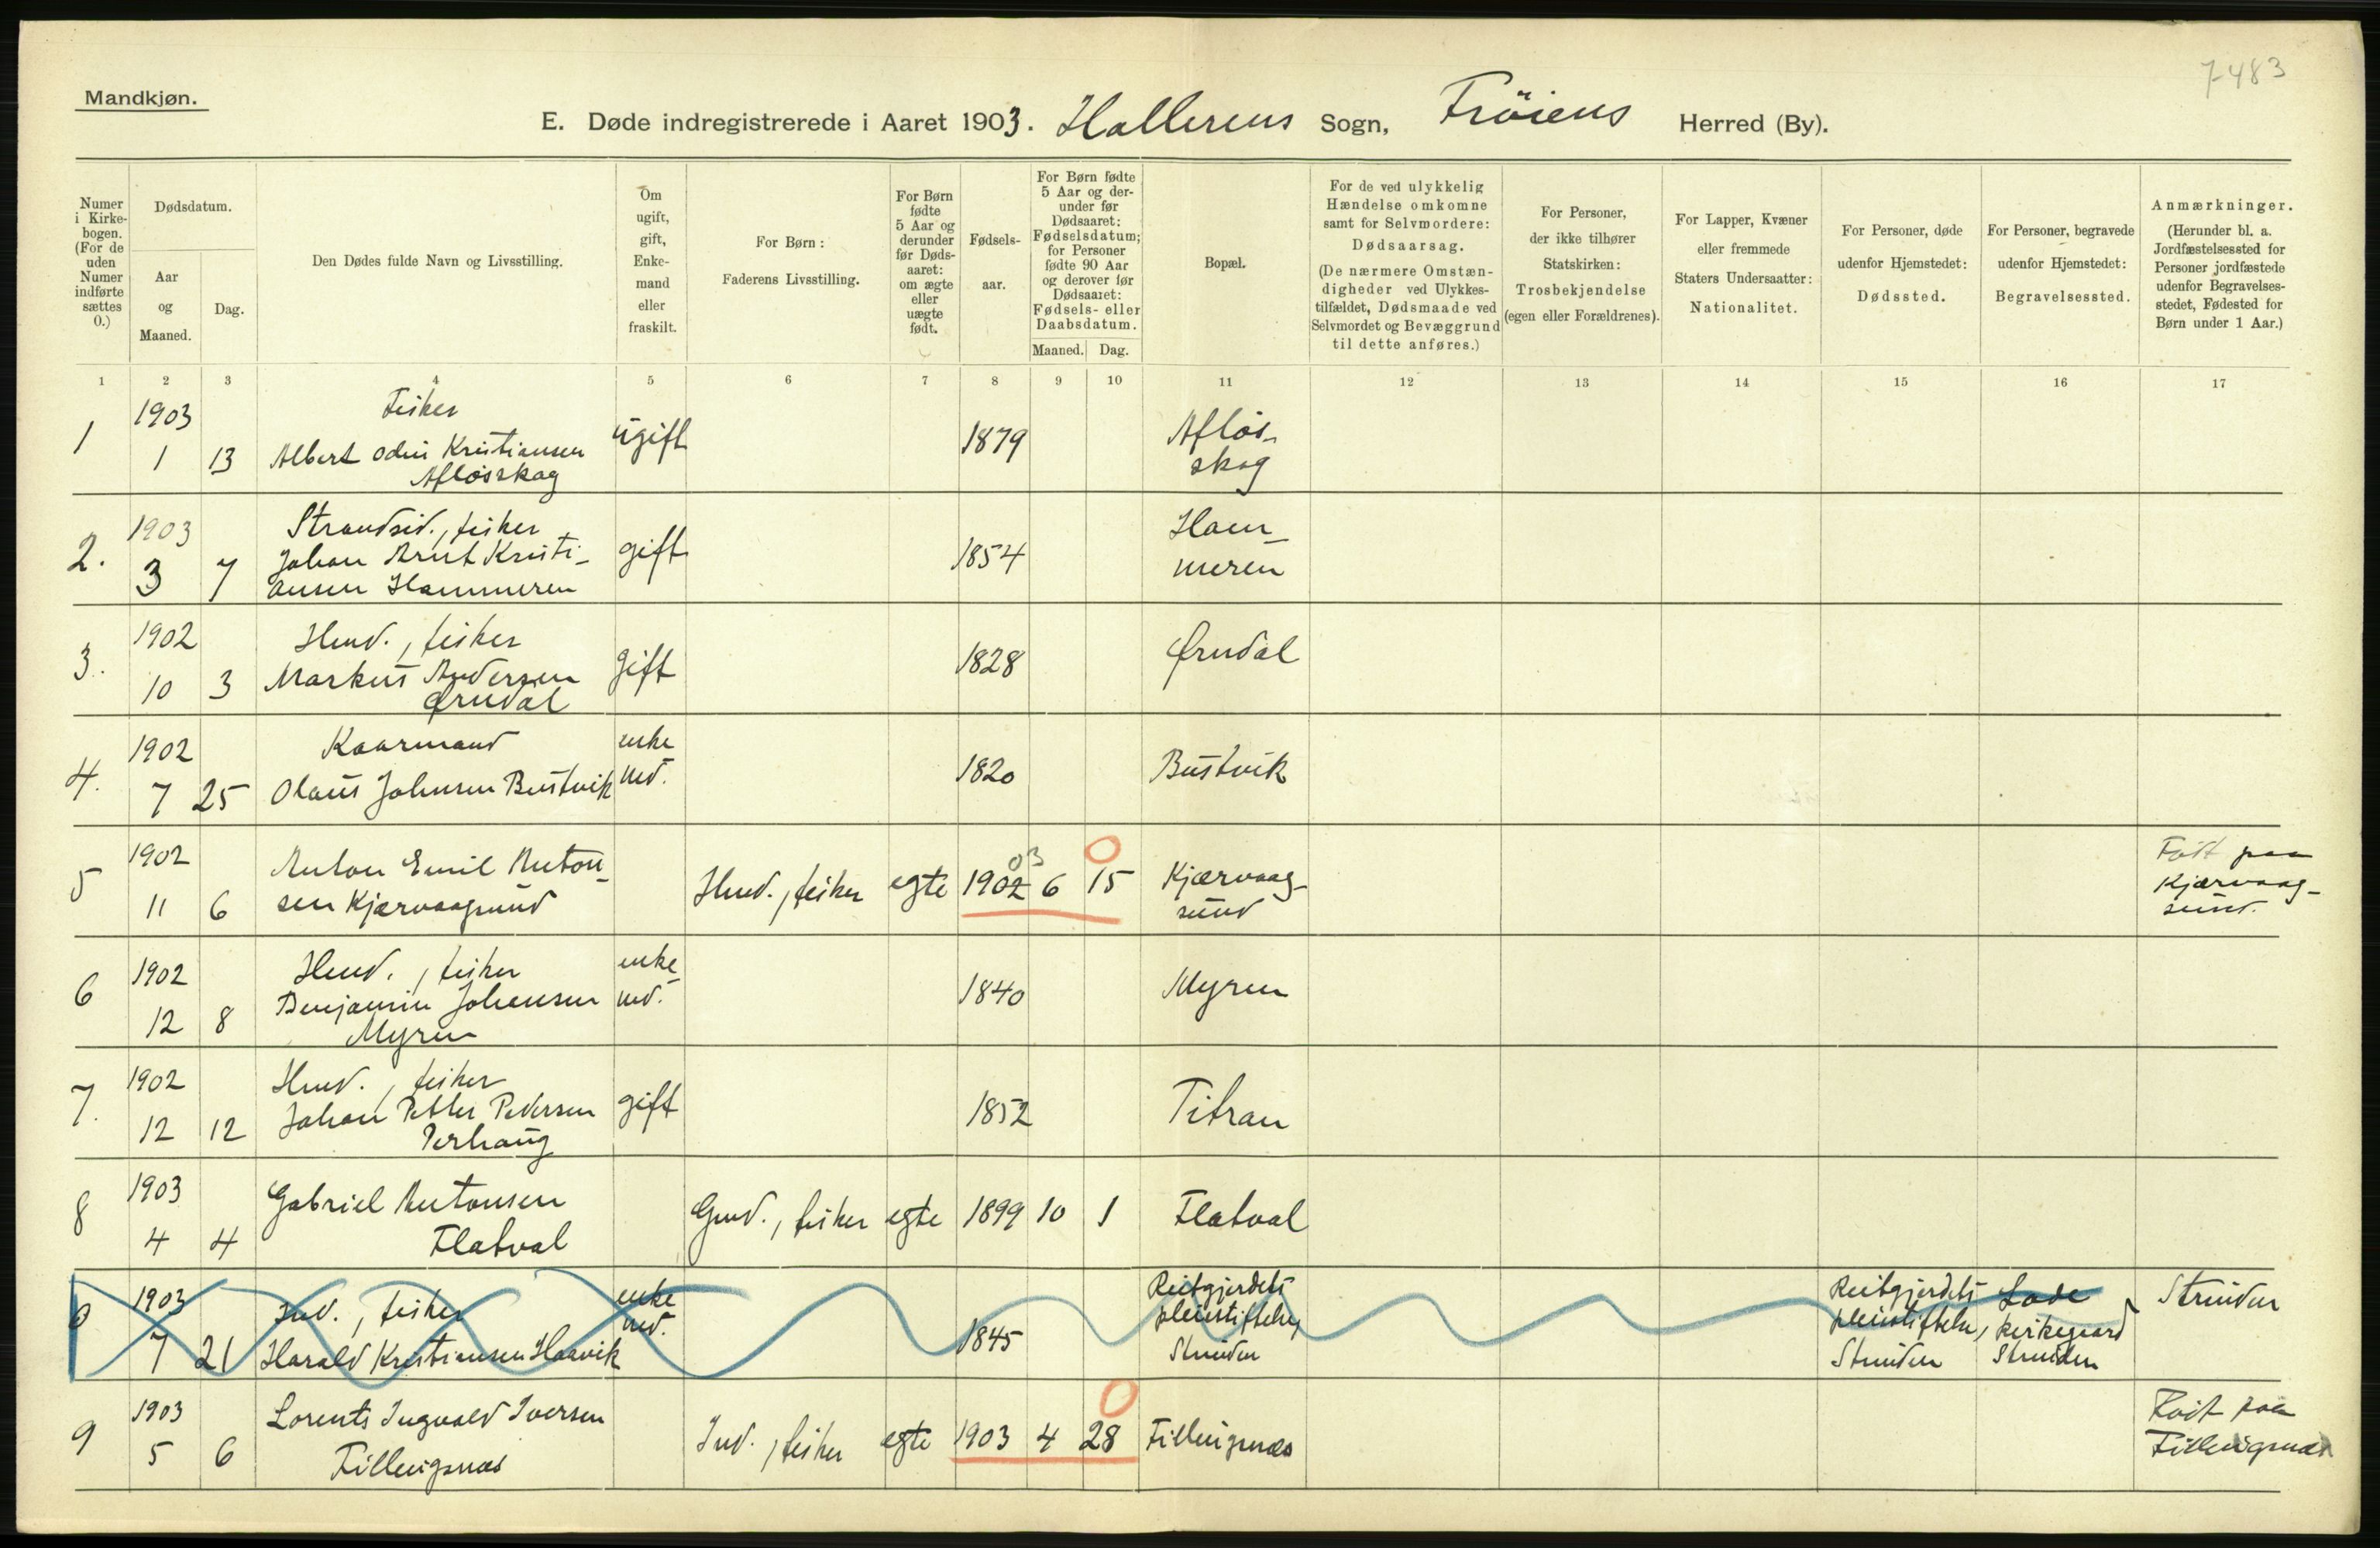 7483
Mandkjøn.
E. Døde indregistrerede i Aaret 1903. Hallerens Sogn, Fröiens Herred (By).
Numer i Kirke-bogen. (For de uden Numer indførte sættes 0.)
Dødsdatum.
Aar og Maaned.
Dag.
Den Dødes fulde Navn og Livsstilling.
Om ugift, gift, Enke-mand eller fraskilt.
For Børn: Faderens Livsstilling.
For Børn fødte 5 Aar og derunder før Døds-aaret: om ægte eller uægte født.
Fødsels-aar.
For Børn fødte 5 Aar og der-under før Dødsaaret: Fødselsdatum; for Personer fødte 90 Aar og derover før Dødsaaret: Fødsels- eller Daabsdatum.
Maaned. Dag.
Bopæl.
For de ved ulykkelig Hændelse omkomne samt for Selvmordere: Dødsaarsag. (De nærmere Omstæn-digheder ved Ulykkes-tilfældet, Dødsmaade ved Selvmordet og Bevæggrund til dette anføres.)
For Personer, der ikke tilhører Statskirken: Trosbekjendelse (egen eller Forældrenes).
For Lapper, Kvæner eller fremmede Staters Undersaatter: Nationalitet.
For Personer, døde udenfor Hjemstedet: Dødssted.
For Personer, begravede udenfor Hjemstedet: Begravelsessted.
Anmærkninger. (Herunder bl. a. Jordfæstelsessted for Personer jordfæstede udenfor Begravelses-stedet, Fødested for Børn under 1 Aar.)
1 2 3 4 5 6 7 8 9 10 11 12 13 14 15 16 17
1903 Fisker
1 1 13 Albert Odin Kristiansen ugift 1879 Afløs-
Afløsskag skag
1903 Strandsid., fisker Ham-
2. 3 7 Johan Arnt Kristi- gift 1854 meren
ansen Hammeren
1902 Hmd., fisker
3. 10 3 Markus Andersen gift 1828 Ørndal
Ørndal
1902 Kaarmand enke
4. 7 25 Olaus Johnsen Bustvik md. 1820 Bustvik
1902 Anton Emil Anton- 03 0 Født paa
5 11 6 sen Kjærvaagsund Hmd., fisker egte 1902 6 15 Kjærvaag- Kjærvaag-
sund sund.
1902 Hmd., fisker enke-
6 12 8 Benjamin Johansen md. 1840 Myren
Myren
1902 Hmd., fisker
7. 12 12 Johan Petter Pedersen gift 1852 Titran
Perhaug
1903 Gabriel Antonsen
8 4 4 Flatval Gmd., fisker egte 1899 10 1 Flatval
1903 Ind., fisker enke Reitgjerdets Reitgjerdets Lade Strinden
0 7 21 Harald Kristiansen Haavik md. 1845 pleiestiftelse, pleiestiftelse, kirkegaard
Strinden Strinden Strinden
1903 Lorents Ingvald Iversen 0 Født paa
9 5 6 Fillingsnæs Ind., fisker egte 1903 4 28 Fillingsnæs Fillingsnæs